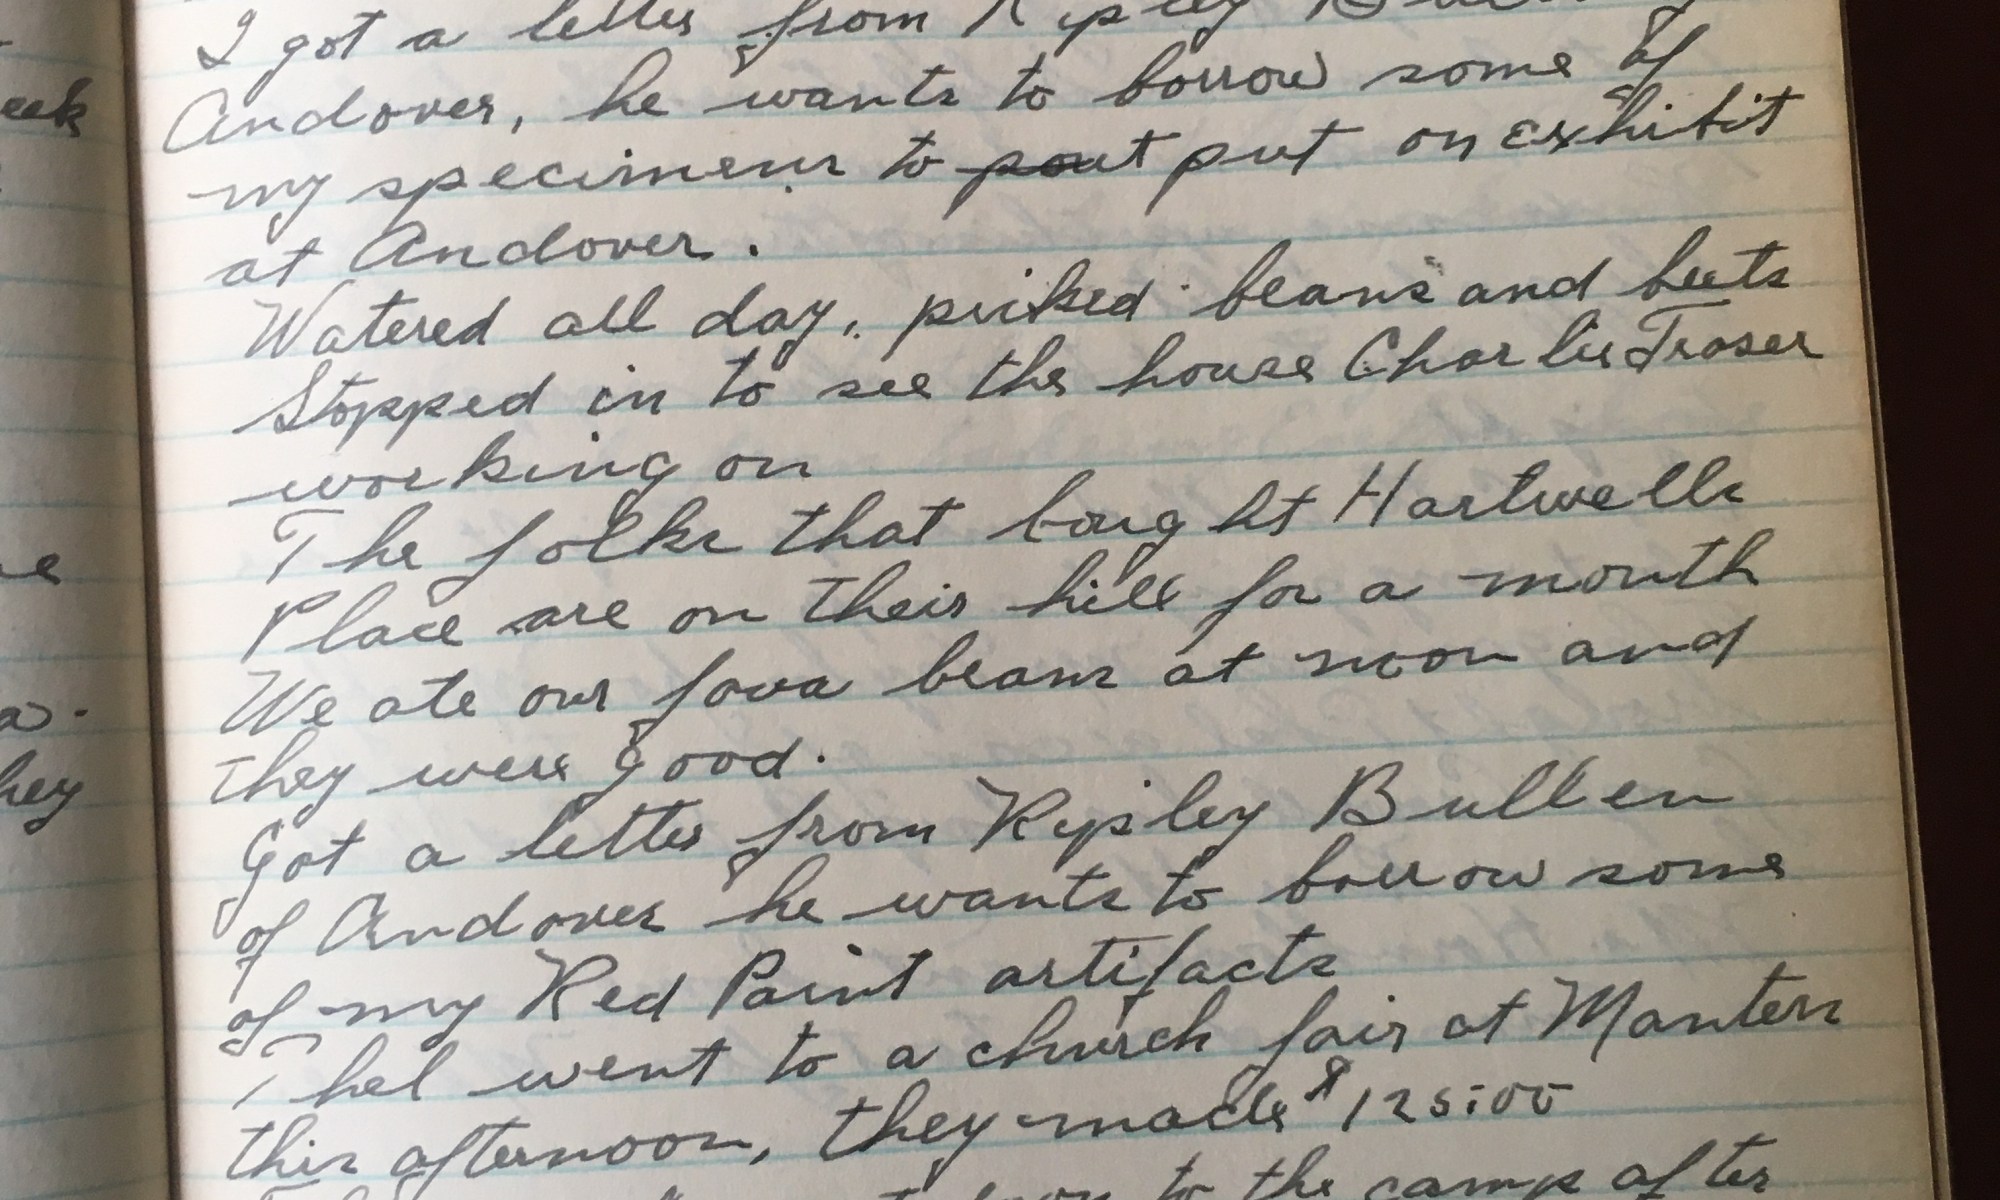 I got a letter from Ripley
Andover, he wants to borrow some of
my specimens to pout put on exhibit
at Andover.
Watered all day, picked beans and beets
Stopped in to see the house Charlie Fraser
working on
The folks that bought Hartwells
Place are on their hill for a month
We ate our fava beans at noon and
they were good.
Got a letter from Ripley Bullen
of Andover he wants to borrow some
of my Red Paint artifacts
Thel went to a church fair at Manters
this afternoon, they made $125.00
to the camp after
eek
hey